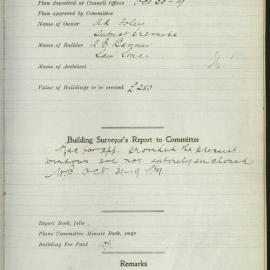 Plan deposited at Council Offices Oct 30-19
Plan approved by Committee
Name of Owner A.R. Foley
Name of Builder
Name of Architect
Value of Buildings to be erected £250
Building Surveyor's Report to Committee
Rec for app. provided the present
windows are not entirely enclosed
Oct 31-19
Report Book, folio
Plans Committee Minute Book, page
Building Fee Paid 10/-
Remarks